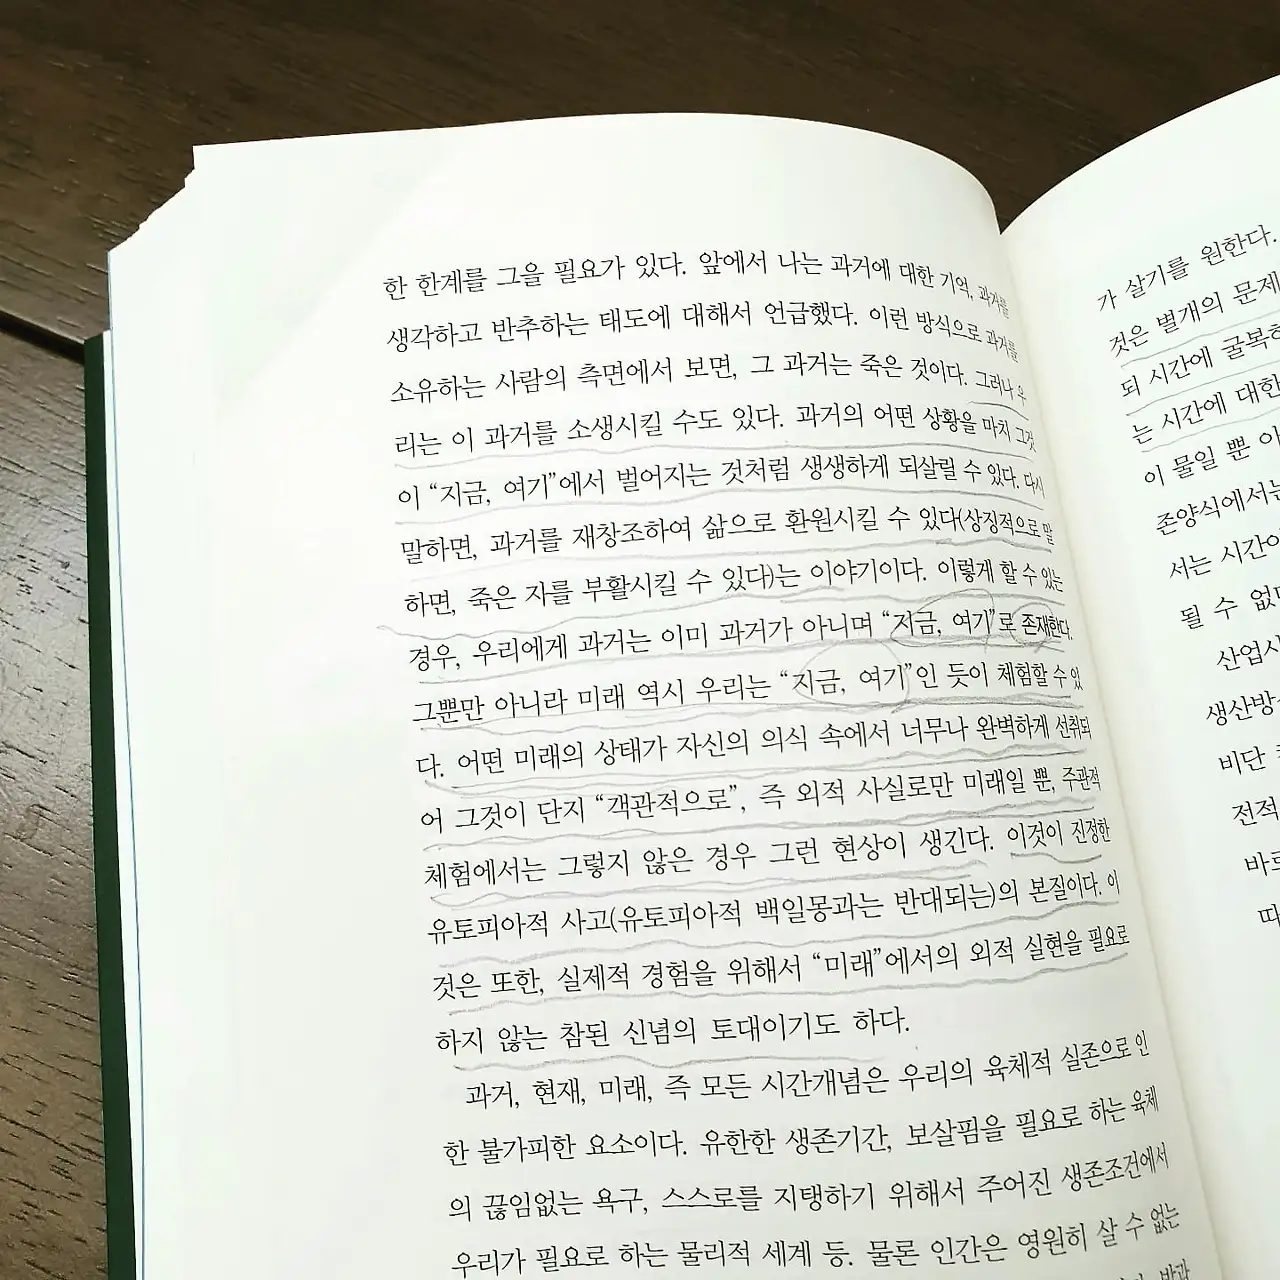 한 한계를 그을 필요가 있다. 앞에서 나는 과거에 대한 기억, 과거를
생각하고 반추하는 태도에 대해서 언급했다. 이런 방식으로 과거를
소유하는 사람의 측면에서 보면, 그 과거는 죽은 것이다. 그러나 우
리는 이 과거를 소생시킬 수도 있다. 과거의 어떤 상황을 마치 그것
이 “지금, 여기”에서 벌어지는 것처럼 생생하게 되살릴 수 있다. 다시
말하면, 과거를 재창조하여 삶으로 환원시킬 수 있다(상징적으로 말
하면, 죽은 자를 부활시킬 수 있다)는 이야기이다. 이렇게 할 수 있는
경우, 우리에게 과거는 이미 과거가 아니며 “지금, 여기”로 존재한다.
그뿐만 아니라 미래 역시 우리는 “지금, 여기”인 듯이 체험할 수 있
다. 어떤 미래의 상태가 자신의 의식 속에서 너무나 완벽하게 선취되
어 그것이 단지 “객관적으로”, 즉 외적 사실로만 미래일 뿐, 주관적
체험에서는 그렇지 않은 경우 그런 현상이 생긴다. 이것이 진정한
유토피아적 사고(유토피아적 백일몽과는 반대되는)의 본질이다. 이
것은 또한, 실제적 경험을 위해서 “미래”에서의 외적 실현을 필요로
하지 않는 참된 신념의 토대이기도 하다.
과거, 현재, 미래, 즉 모든 시간개념은 우리의 육체적 실존으로 인
한 불가피한 요소이다. 유한한 생존기간, 보살핌을 필요로 하는 육체
의 끊임없는 욕구, 스스로를 지탱하기 위해서 주어진 생존조건에서
우리가 필요로 하는 물리적 세계 등. 물론 인간은 영원히 살 수 없는
가 살기를 원한다.
것은 별개의 문제
되 시간에 굴복하
는 시간에 대한
이 물일 뿐 이
존양식에서는
서는 시간이
될 수 없다
산업사
생산방
비단
전적
바로
따